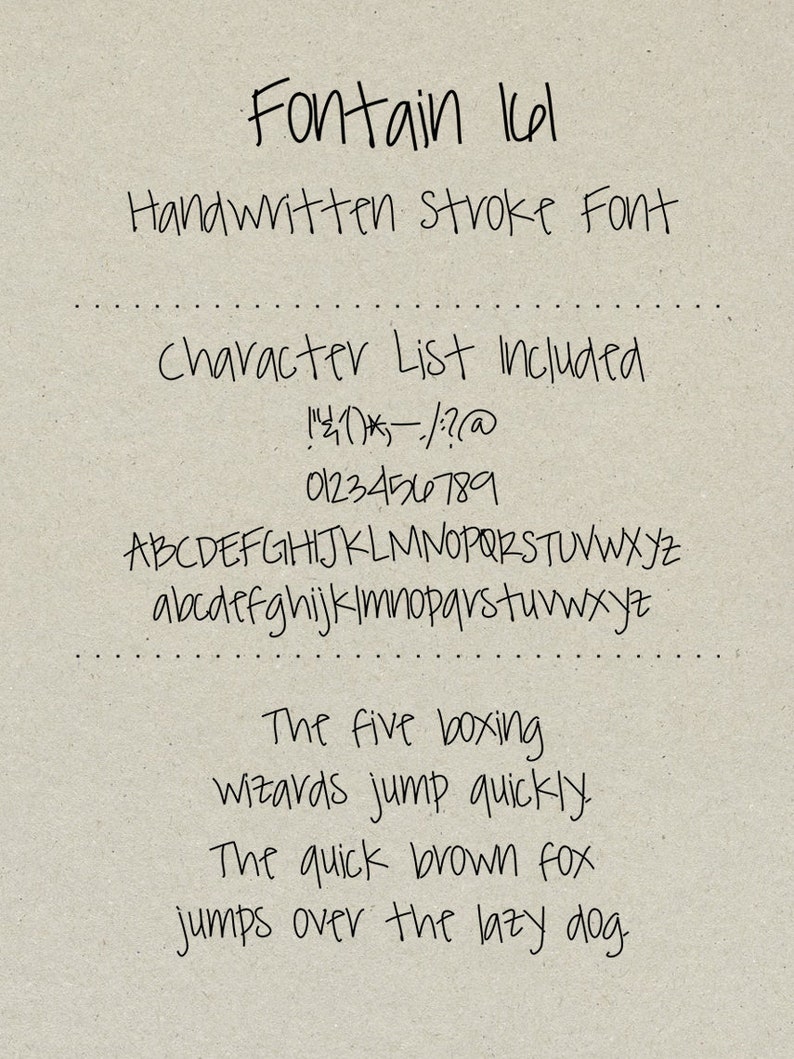 Fontain 161
Handwritten Stroke Font
Character List Included
!"&'()*,-./:?@
0123456789
ABCDEFGHIJKLMNOPQRSTUVWXYZ
abcdefghijklmnopqrstuvwxyz
The five boxing
wizards jump quickly.
The quick brown fox
jumps over the lazy dog.